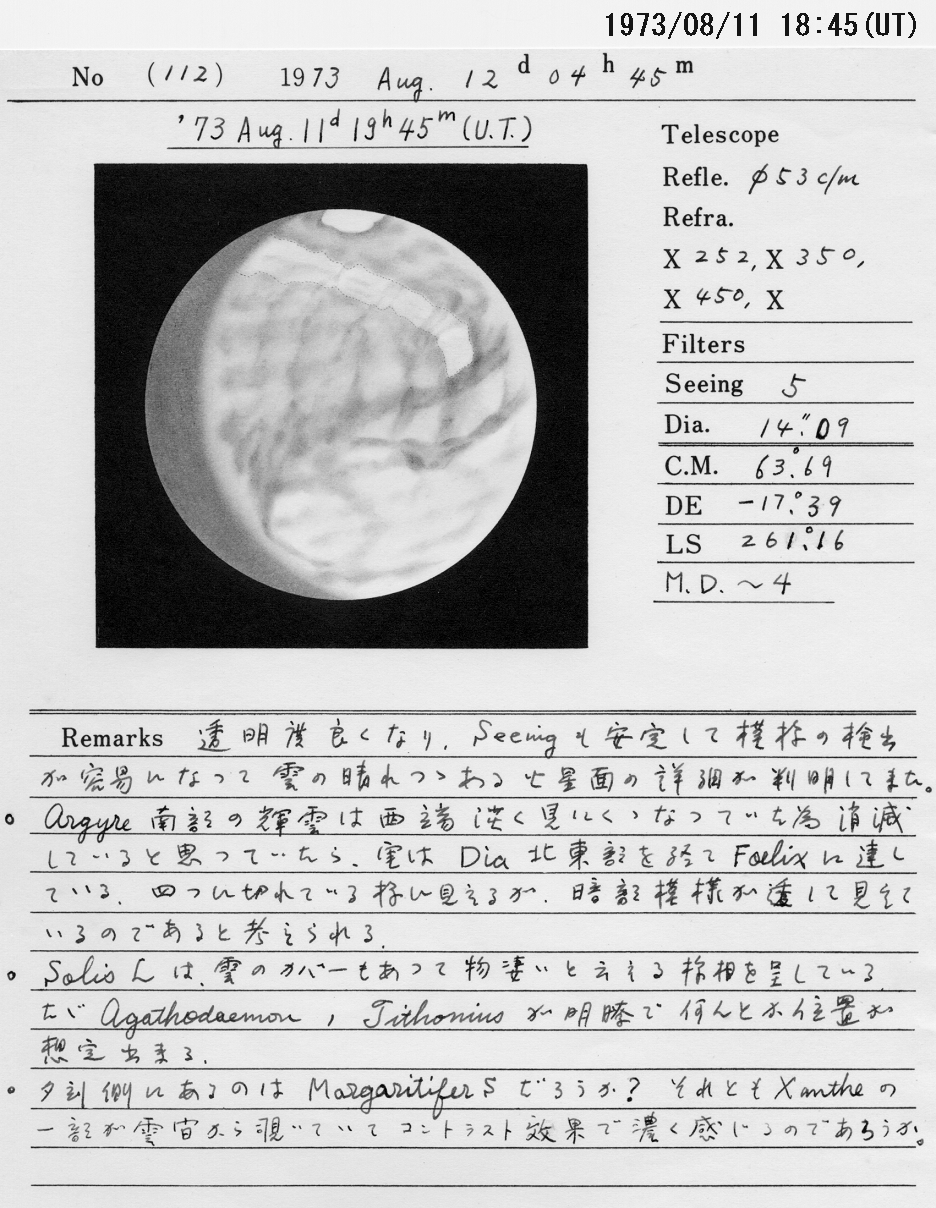 1973/08/11 18:45(UT)
No (112) 1973 Aug. 12 d 04 h 45 m
'73 Aug. 11d 19h 45m (U.T.)
Telescope
Refle. φ53 c/m
Refra.
X 252, X 350,
X 450, X
Filters
Seeing 5
Dia. 14."09
C.M. 63.°69
DE -17.°39
LS 261.°16
M.D. ~4
Remarks 透明度良くなり、Seeingも安定して模様の検出
が容易になって雲の晴れつゝある火星面の詳細が判明して来た。
○ Argyre 南部の輝雲は西端淡く見にくくなっていた為消滅
していると思っていたら、実は Dia 北東部を経て Foelix に達し
ている。四つに切れている様に見えるが、暗部模様が透して見えて
いるのであると考えられる。
○ Solis L は、雲のカバーもあって物凄いと云える様相を呈している
たゞ Agathodaemon, Tithonius が明瞭で何んとか位置が
想定出来る。
○ 夕刻側にあるのは Margaritifer S だろうか? それとも Xanthe の
一部が雲間から覗いていてコントラスト効果で濃く感じるのであろうか。